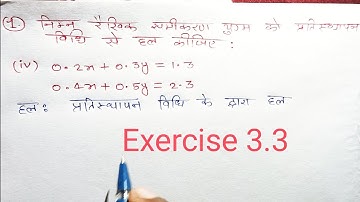 ① निम्न रैखिक समीकरण युग्म को प्रतिस्थापन
विधि से हल कीजिए :
(iv) 0.2x + 0.3y = 1.3
0.4x + 0.5y = 2.3
हल : प्रतिस्थापन विधि के द्वारा हल
Exercise 3.3